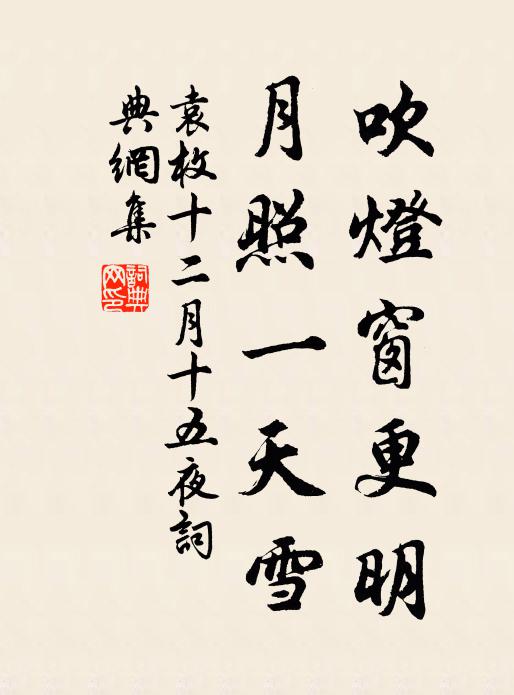 吹燈窗更明
月照一天雪
袁枚十二月十五夜詞
典網集
詞典
网印